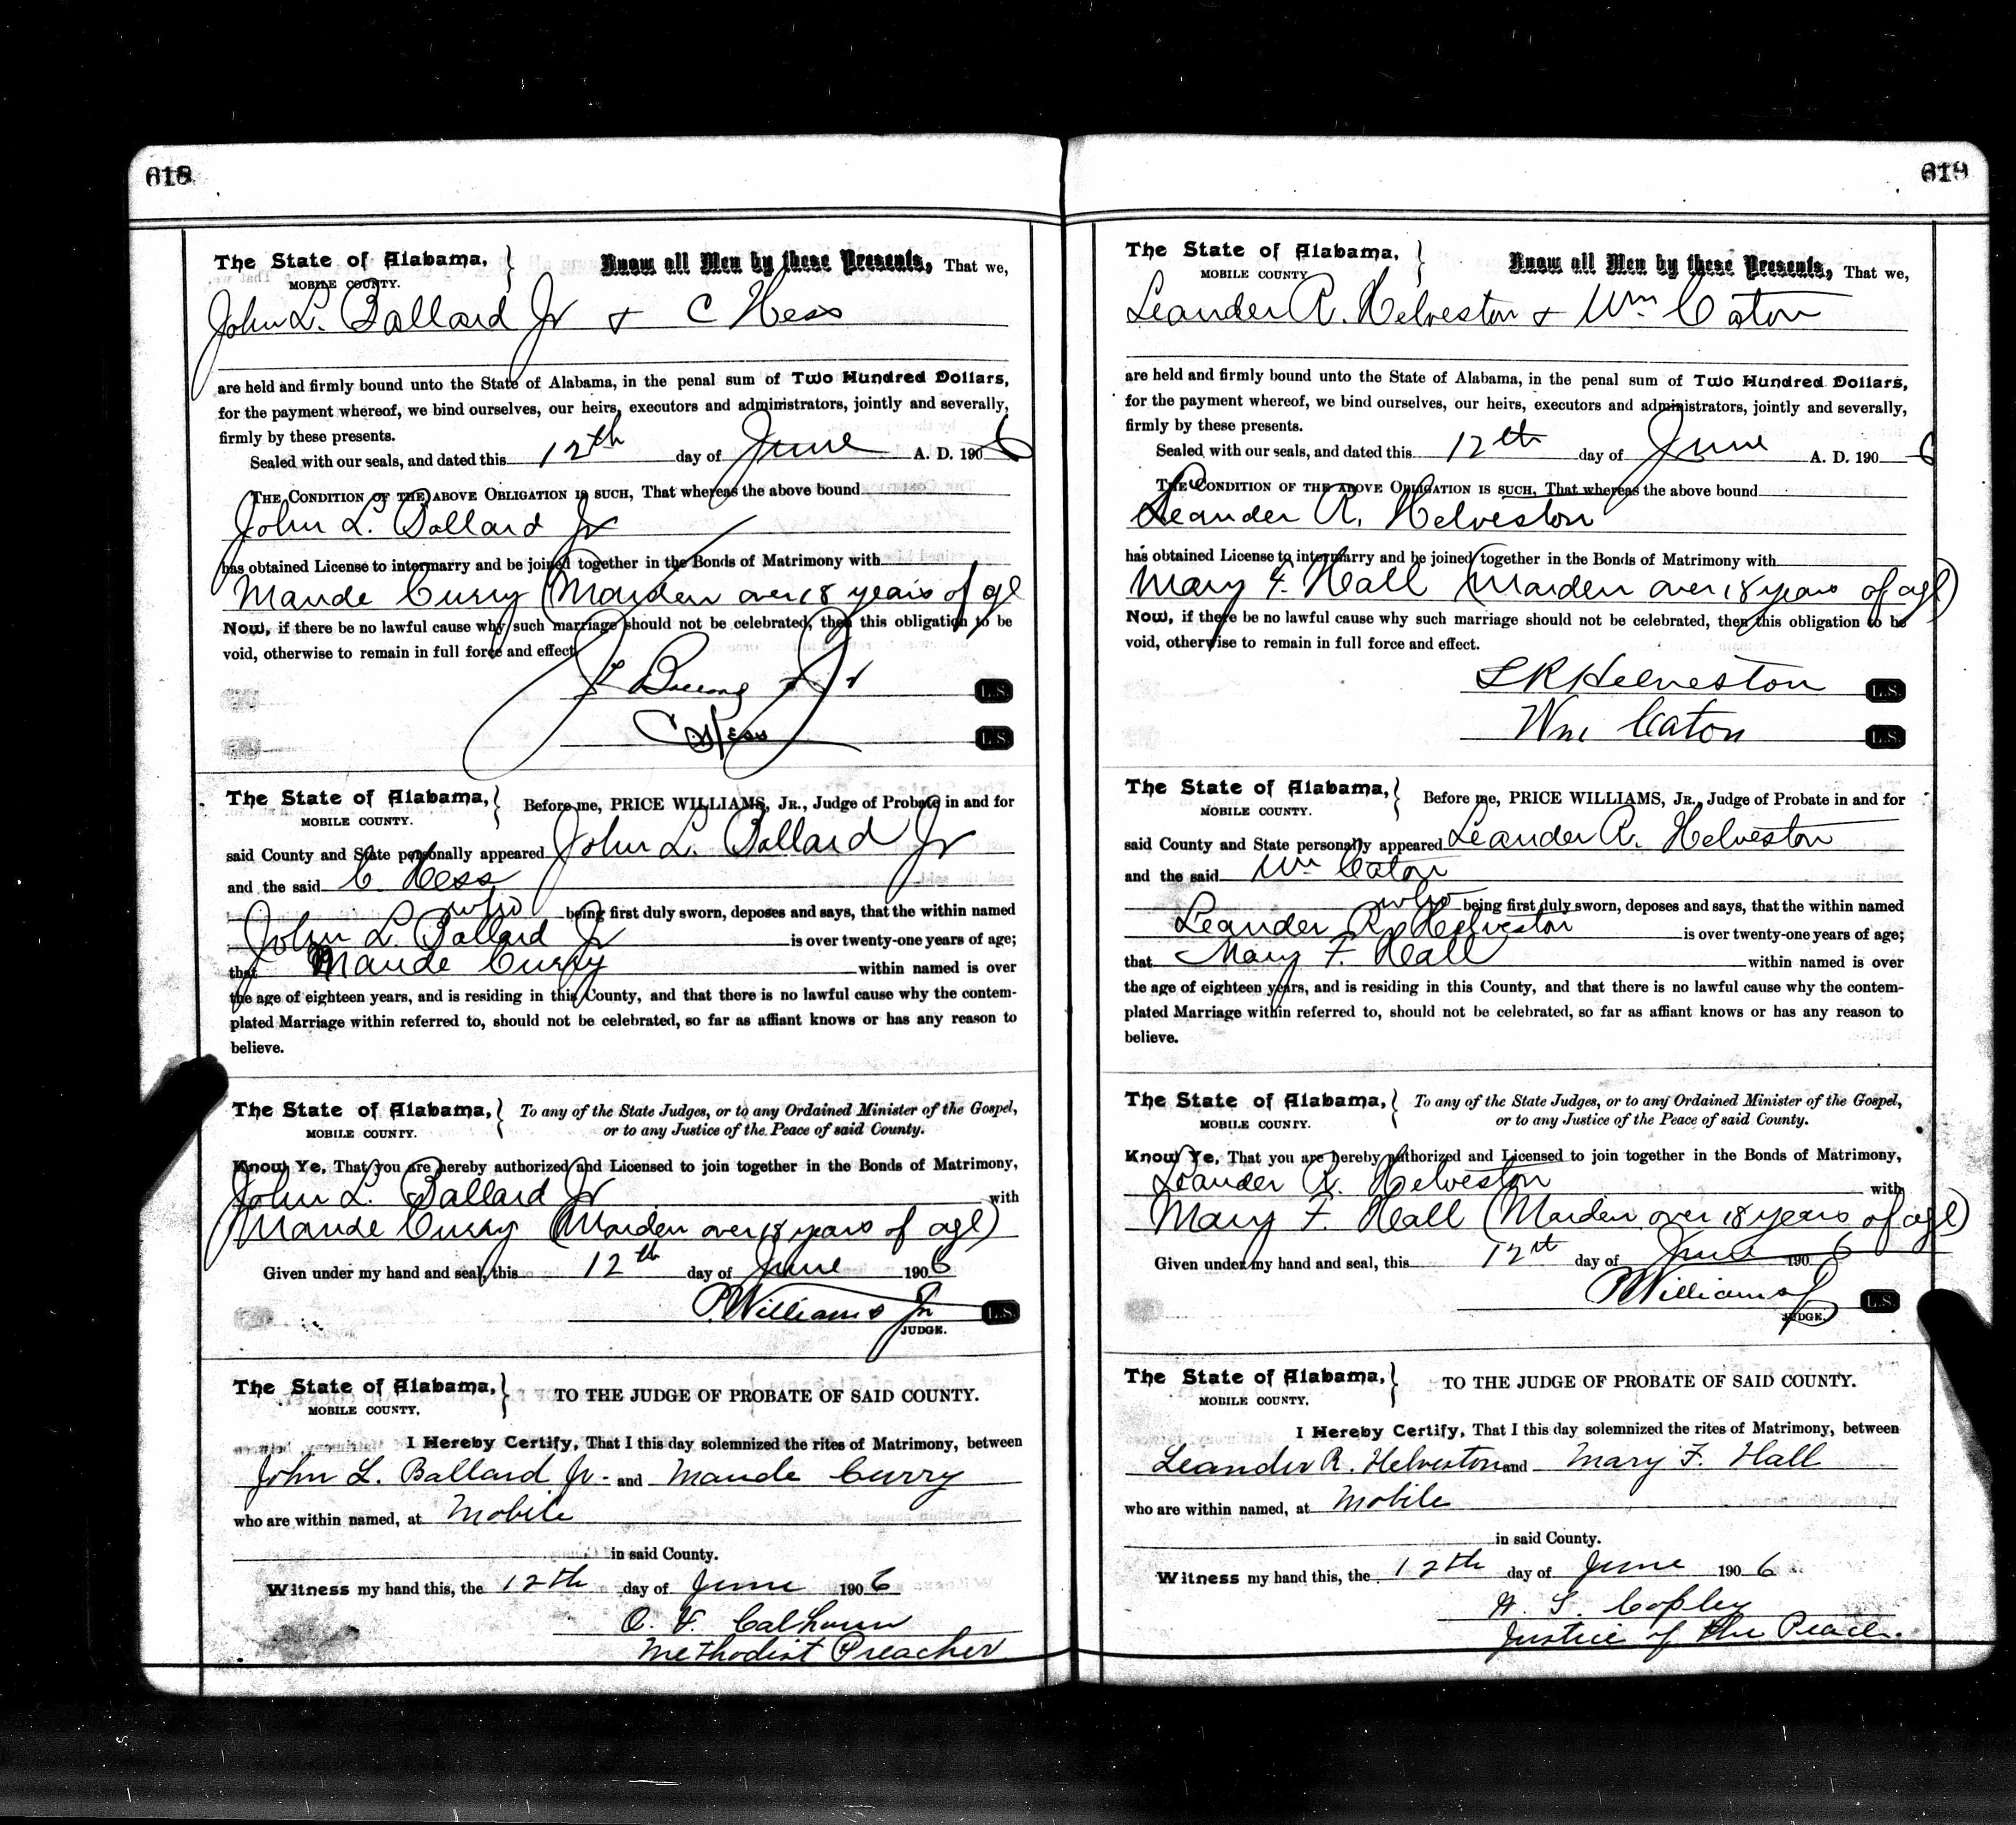 618
The State of Alabama, Know all Men by these Presents, That we,
MOBILE COUNTY.
John L. Ballard Jr + C Hess
are held and firmly bound unto the State of Alabama, in the penal sum of Two Hundred Dollars,
for the payment whereof, we bind ourselves, our heirs, executors and administrators, jointly and severally,
firmly by these presents.
Sealed with our seals, and dated this 12th day of June A. D. 1906
THE CONDITION OF THE ABOVE OBLIGATION IS SUCH, That whereas the above bound
John L. Ballard Jr
has obtained License to intermarry and be joined together in the Bonds of Matrimony with
Maude Curry (Maiden over 18 years of age
Now, if there be no lawful cause why such marriage should not be celebrated, then this obligation to be
void, otherwise to remain in full force and effect
Jr L.S.
C Hess L.S.
The State of Alabama, Before me, PRICE WILLIAMS, JR., Judge of Probate in and for
MOBILE COUNTY.
said County and State personally appeared John L. Ballard Jr
and the said C. Hess
who being first duly sworn, deposes and says, that the within named
John L. Ballard Jr is over twenty-one years of age;
that Maude Curry within named is over
the age of eighteen years, and is residing in this County, and that there is no lawful cause why the contem-
plated Marriage within referred to, should not be celebrated, so far as affiant knows or has any reason to
believe.
The State of Alabama, To any of the State Judges, or to any Ordained Minister of the Gospel,
MOBILE COUNTY. or to any Justice of the Peace of said County.
Know Ye, That you are hereby authorized and Licensed to join together in the Bonds of Matrimony,
John L. Ballard Jr with
Maude Curry (Maiden over 18 years of age)
Given under my hand and seal, this 12th day of June 1906
P. Williams Jr L.S.
JUDGE.
The State of Alabama, TO THE JUDGE OF PROBATE OF SAID COUNTY.
MOBILE COUNTY,
I Hereby Certify, That I this day solemnized the rites of Matrimony, between
John L. Ballard Jr. and Maude Curry
who are within named, at Mobile
in said County.
Witness my hand this, the 12th day of June 1906
Calhoun
Methodist Preacher
619
The State of Alabama, Know all Men by these Presents, That we,
MOBILE COUNTY
Leander R. Helveston + Wm Caton
are held and firmly bound unto the State of Alabama, in the penal sum of Two Hundred Dollars,
for the payment whereof, we bind ourselves, our heirs, executors and administrators, jointly and severally,
firmly by these presents.
Sealed with our seals, and dated this 12th day of June A. D. 1906
THE CONDITION OF THE ABOVE OBLIGATION IS SUCH, That whereas the above bound
Leander R. Helveston
has obtained License to intermarry and be joined together in the Bonds of Matrimony with
Mary F. Hall (Maiden over 18 years of age)
Now, if there be no lawful cause why such marriage should not be celebrated, then this obligation to be
void, otherwise to remain in full force and effect.
L R Helveston L.S.
Wm Caton L.S.
The State of Alabama, Before me, PRICE WILLIAMS, JR., Judge of Probate in and for
MOBILE COUNTY.
said County and State personally appeared Leander R. Helveston
and the said Wm Caton
who being first duly sworn, deposes and says, that the within named
Leander R. Helveston is over twenty-one years of age;
that Mary F. Hall within named is over
the age of eighteen years, and is residing in this County, and that there is no lawful cause why the contem-
plated Marriage within referred to, should not be celebrated, so far as affiant knows or has any reason to
believe.
The State of Alabama, To any of the State Judges, or to any Ordained Minister of the Gospel,
MOBILE COUNTY. or to any Justice of the Peace of said County.
Know Ye, That you are hereby authorized and Licensed to join together in the Bonds of Matrimony,
Leander R. Helveston with
Mary F. Hall (Maiden over 18 years of age)
Given under my hand and seal, this 12st day of June 1906
P Williams Jr L.S.
JUDGE.
The State of Alabama, TO THE JUDGE OF PROBATE OF SAID COUNTY.
MOBILE COUNTY,
I Hereby Certify, That I this day solemnized the rites of Matrimony, between
Leander R. Helveston and Mary F. Hall
who are within named, at Mobile
in said County.
Witness my hand this, the 12th day of June 1906
S. Copley
Justice of the Peace.